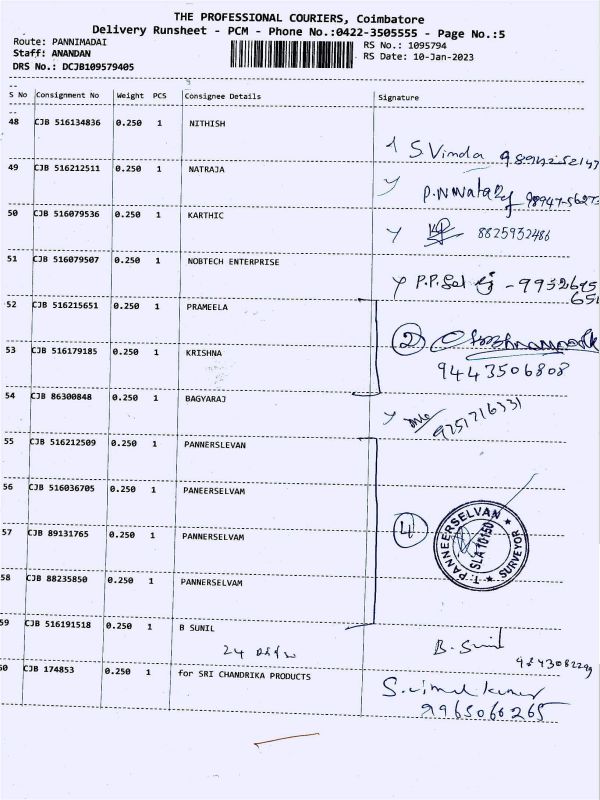 THE PROFESSIONAL COURIERS, Coimbatore
Delivery Runsheet - PCM - Phone No.:0422-3505555 - Page No.:5
Route: PANNIMADAI
Staff: ANANDAN
DRS No.: DCJB109579405
RS No.: 1095794
RS Date: 10-Jan-2023
S No Consignment No Weight PCS Consignee Details Signature
48 CJB 516134836 0.250 1 NITHISH
S. Vimda
49 CJB 516212511 0.250 1 NATRAJA
98947-5627
50 CJB 516079536 0.250 1 KARTHIC
8825932486
51 CJB 516079507 0.250 1 NOBTECH ENTERPRISE
P.P. - 9952695
651
52 CJB 516215651 0.250 1 PRAMEELA
2
53 CJB 516179185 0.250 1 KRISHNA
9443506808
54 CJB 86300848 0.250 1 BAGYARAJ
9751716331
55 CJB 516212509 0.250 1 PANNERSLEVAN
56 CJB 516036705 0.250 1 PANEERSELVAM
57 CJB 89131765 0.250 1 PANNERSELVAM
4
T. PANNEERSELVAN
SLA 10150
SURVEYOR
58 CJB 88235850 0.250 1 PANNERSELVAM
59 CJB 516191518 0.250 1 B SUNIL
24
B. Sunil
60 CJB 174853 0.250 1 for SRI CHANDRIKA PRODUCTS
S. vimal kumar
9965066265